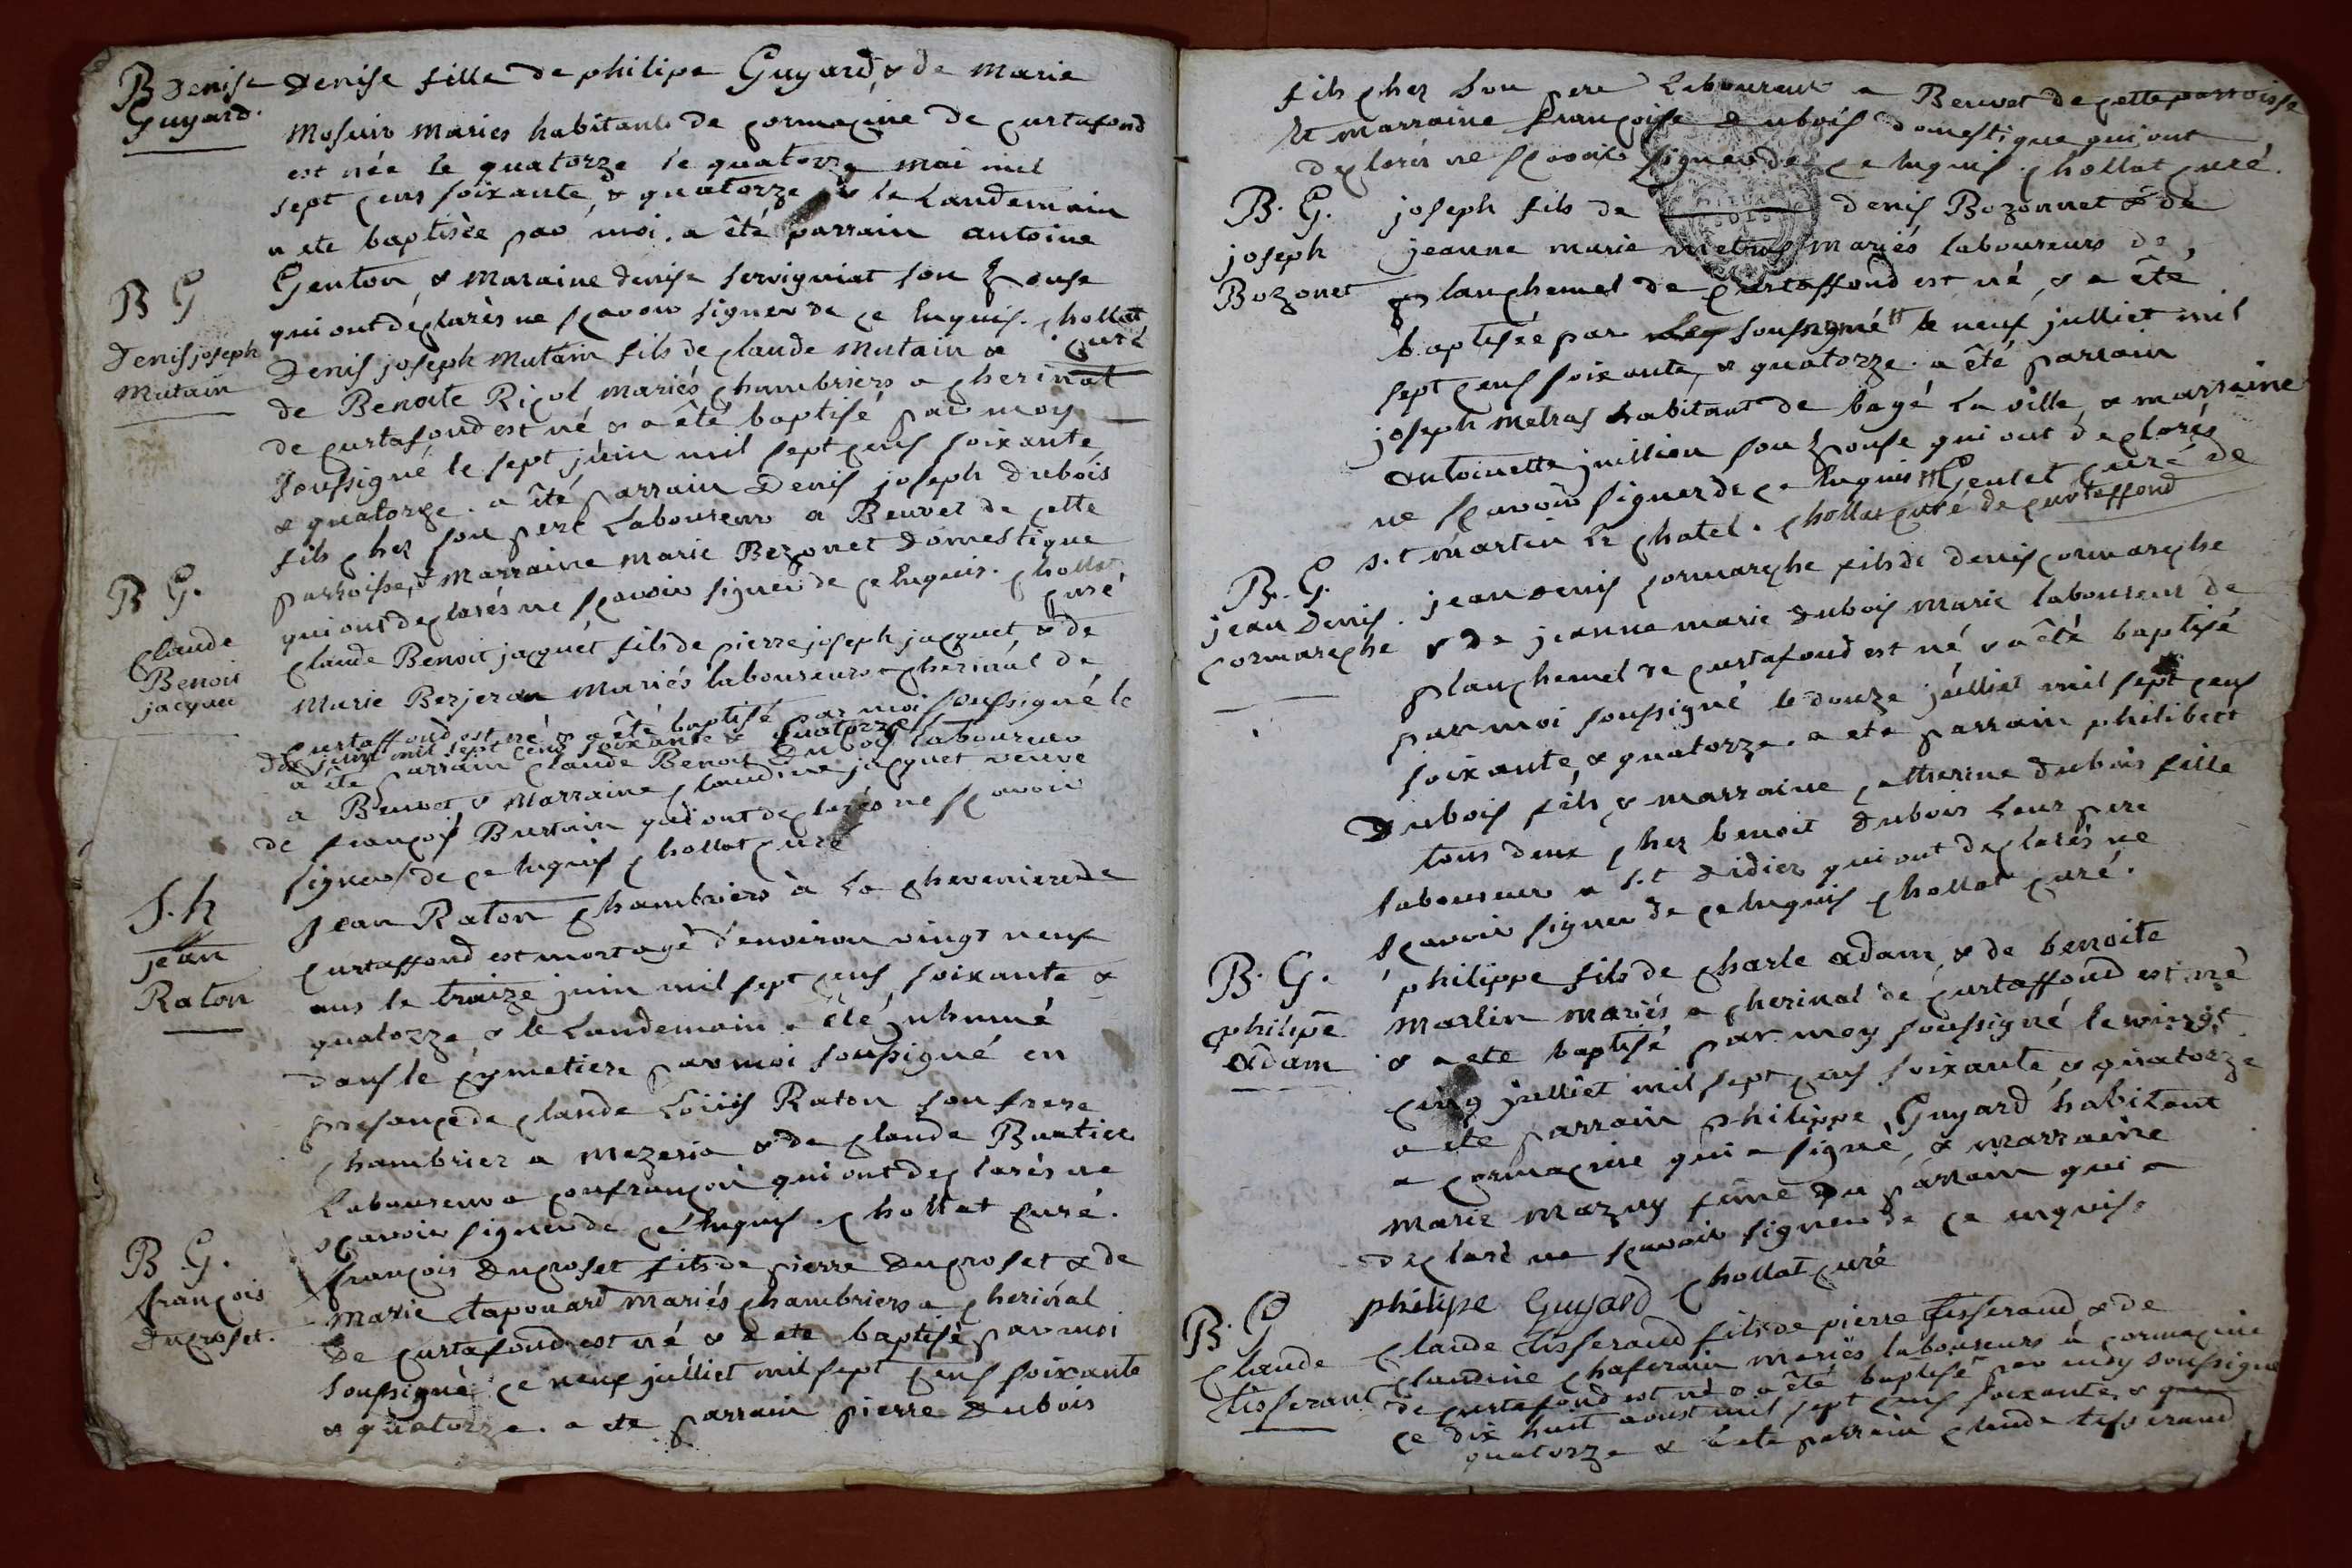 B Denise
Guyard.
Denise fille de philipe Guyard, & de marie
mosuir maries habitants de cormacine de curtafond
est née le quatorze le quatorze mai mil
sept cens soixante, & quatorze & le Landemain
a ete baptisèe par moi. a êté parrain antoine
Genton, & maraine denise servigniat son Epouse
qui ont déclarès ne scavoir signer de ce Enquis. chollat
curé
B G
Denis joseph
mutain
Denis joseph mutain fils de claude mutain &
de Benoite Rigol mariés chambriers a cherinal
de curtafond est né & a êté baptisé par moy
soussigné le sept juin mil sept cens soixante
& quatorze. a êté parrain Denis joseph Dubois
fils chez son pere Laboureur a Beuvet de cette
parroisse, & marraine marie Bozonet domestique
qui ont declarés ne scavoir signer de ce Enquis. chollat
curé
B G.
claude
Benoit
jacquet
claude Benoit jacquet fils de pierre joseph jacquet, & de
marie Berjeron mariés laboureurs a cherinal de
curtaffond est né & a êté baptisé par moi soussigné le
dix juin mil sept cens soixante & quatorze
a êté parrain claude Benoit Dubois laboureur
a Beuvet & marraine claudine jacquet veuve
de françois Burtain qui ont declarés ne scavoir
signer de ce Enquis chollat curé
S. h
jean
Raton
Jean Raton chambriers à la chevenierede
curtaffond est mort agé d'environ vingt neuf
ans le traize juin mil sept cens soixante &
quatorze & le Landemain a êté inhumé
dans le cymetiere par moi soussigné en
presance de claude Loüis Raton son frere
chambrier a mezeria & de claude Buatier
Laboureur a confrançon qui ont declarés ne
scavoir signer de ce Enquis. chollat curé.
B G.
françois
Ducroset.
françois Ducroset fils de pierre Ducroset & de
marie tapouard mariés chambriers a cherinal
de curtafond est né & a ete baptisé par moi
soussigné ce neuf julliet mil sept cens soixante
& quatorze. a ete parrain pierre Dubois
fils chez son pere Laboureur a Beuvet de cette parroisse
et marraine françoise Dubois domestique qui ont
declarés ne scavoir signer de ce Enquis. chollat curé.
B. G.
joseph
Bozonet
joseph fils de denis Bozonnet & de
jeanne marie metras mariés laboureurs de
planchemel de curtaffond est né, & a êté
baptisée par soussigné le neuf julliet mil
sept cens soixante, & quatorze. a êté parrain
joseph metras habitant de bagé la ville & marraine
antoinette juillien son Epouse qui ont declarés
ne scavoir signer de ce Enquis Gentet curé de
s.t martin le chatel. chollat curé de curtaffond
B. G.
jean Denis.
cormareche
jean denis cormareche fils de denis cormareche
& de jeanne marie dubois marie laboureur de
planchemel de curtafond est né & a êté baptisé
par moi soussigné le douze julliet mil sept cens
soixante, & quatorze. a ete parrain philibert
Dubois fils, & marraine catherine dubois fille
tous deux chez benoit dubois leur pere
laboureur a s.t didier qui ont declarés ne
scavoir signer de ce Enquis chollat curé.
B. G.
philipe
adam
philippe fils de charle adam, & de benoite
marlin mariés a cherinal de curtaffond est né
& a ete baptisé par moy soussigné le vingt
cinq julliet mil sept cens soixante & quatorze
a ete parrain philippe Guyard habitant
a cormacine qui a signé, & marraine
marie mazuy feme du parrain qui a
declaré ne scavoir signer de ce enquis.
philipe Guyard chollat curé
B. G
claude
tisserant
claude tisserand fils de pierre tisserand & de
claudine chaferain mariés laboureurs à cormacine
de curtafond est né & a êté baptisé par moy soussigné
ce dix huit aoust mil sept cens soixante, &
quatorze & a ete parrain claude tisserand